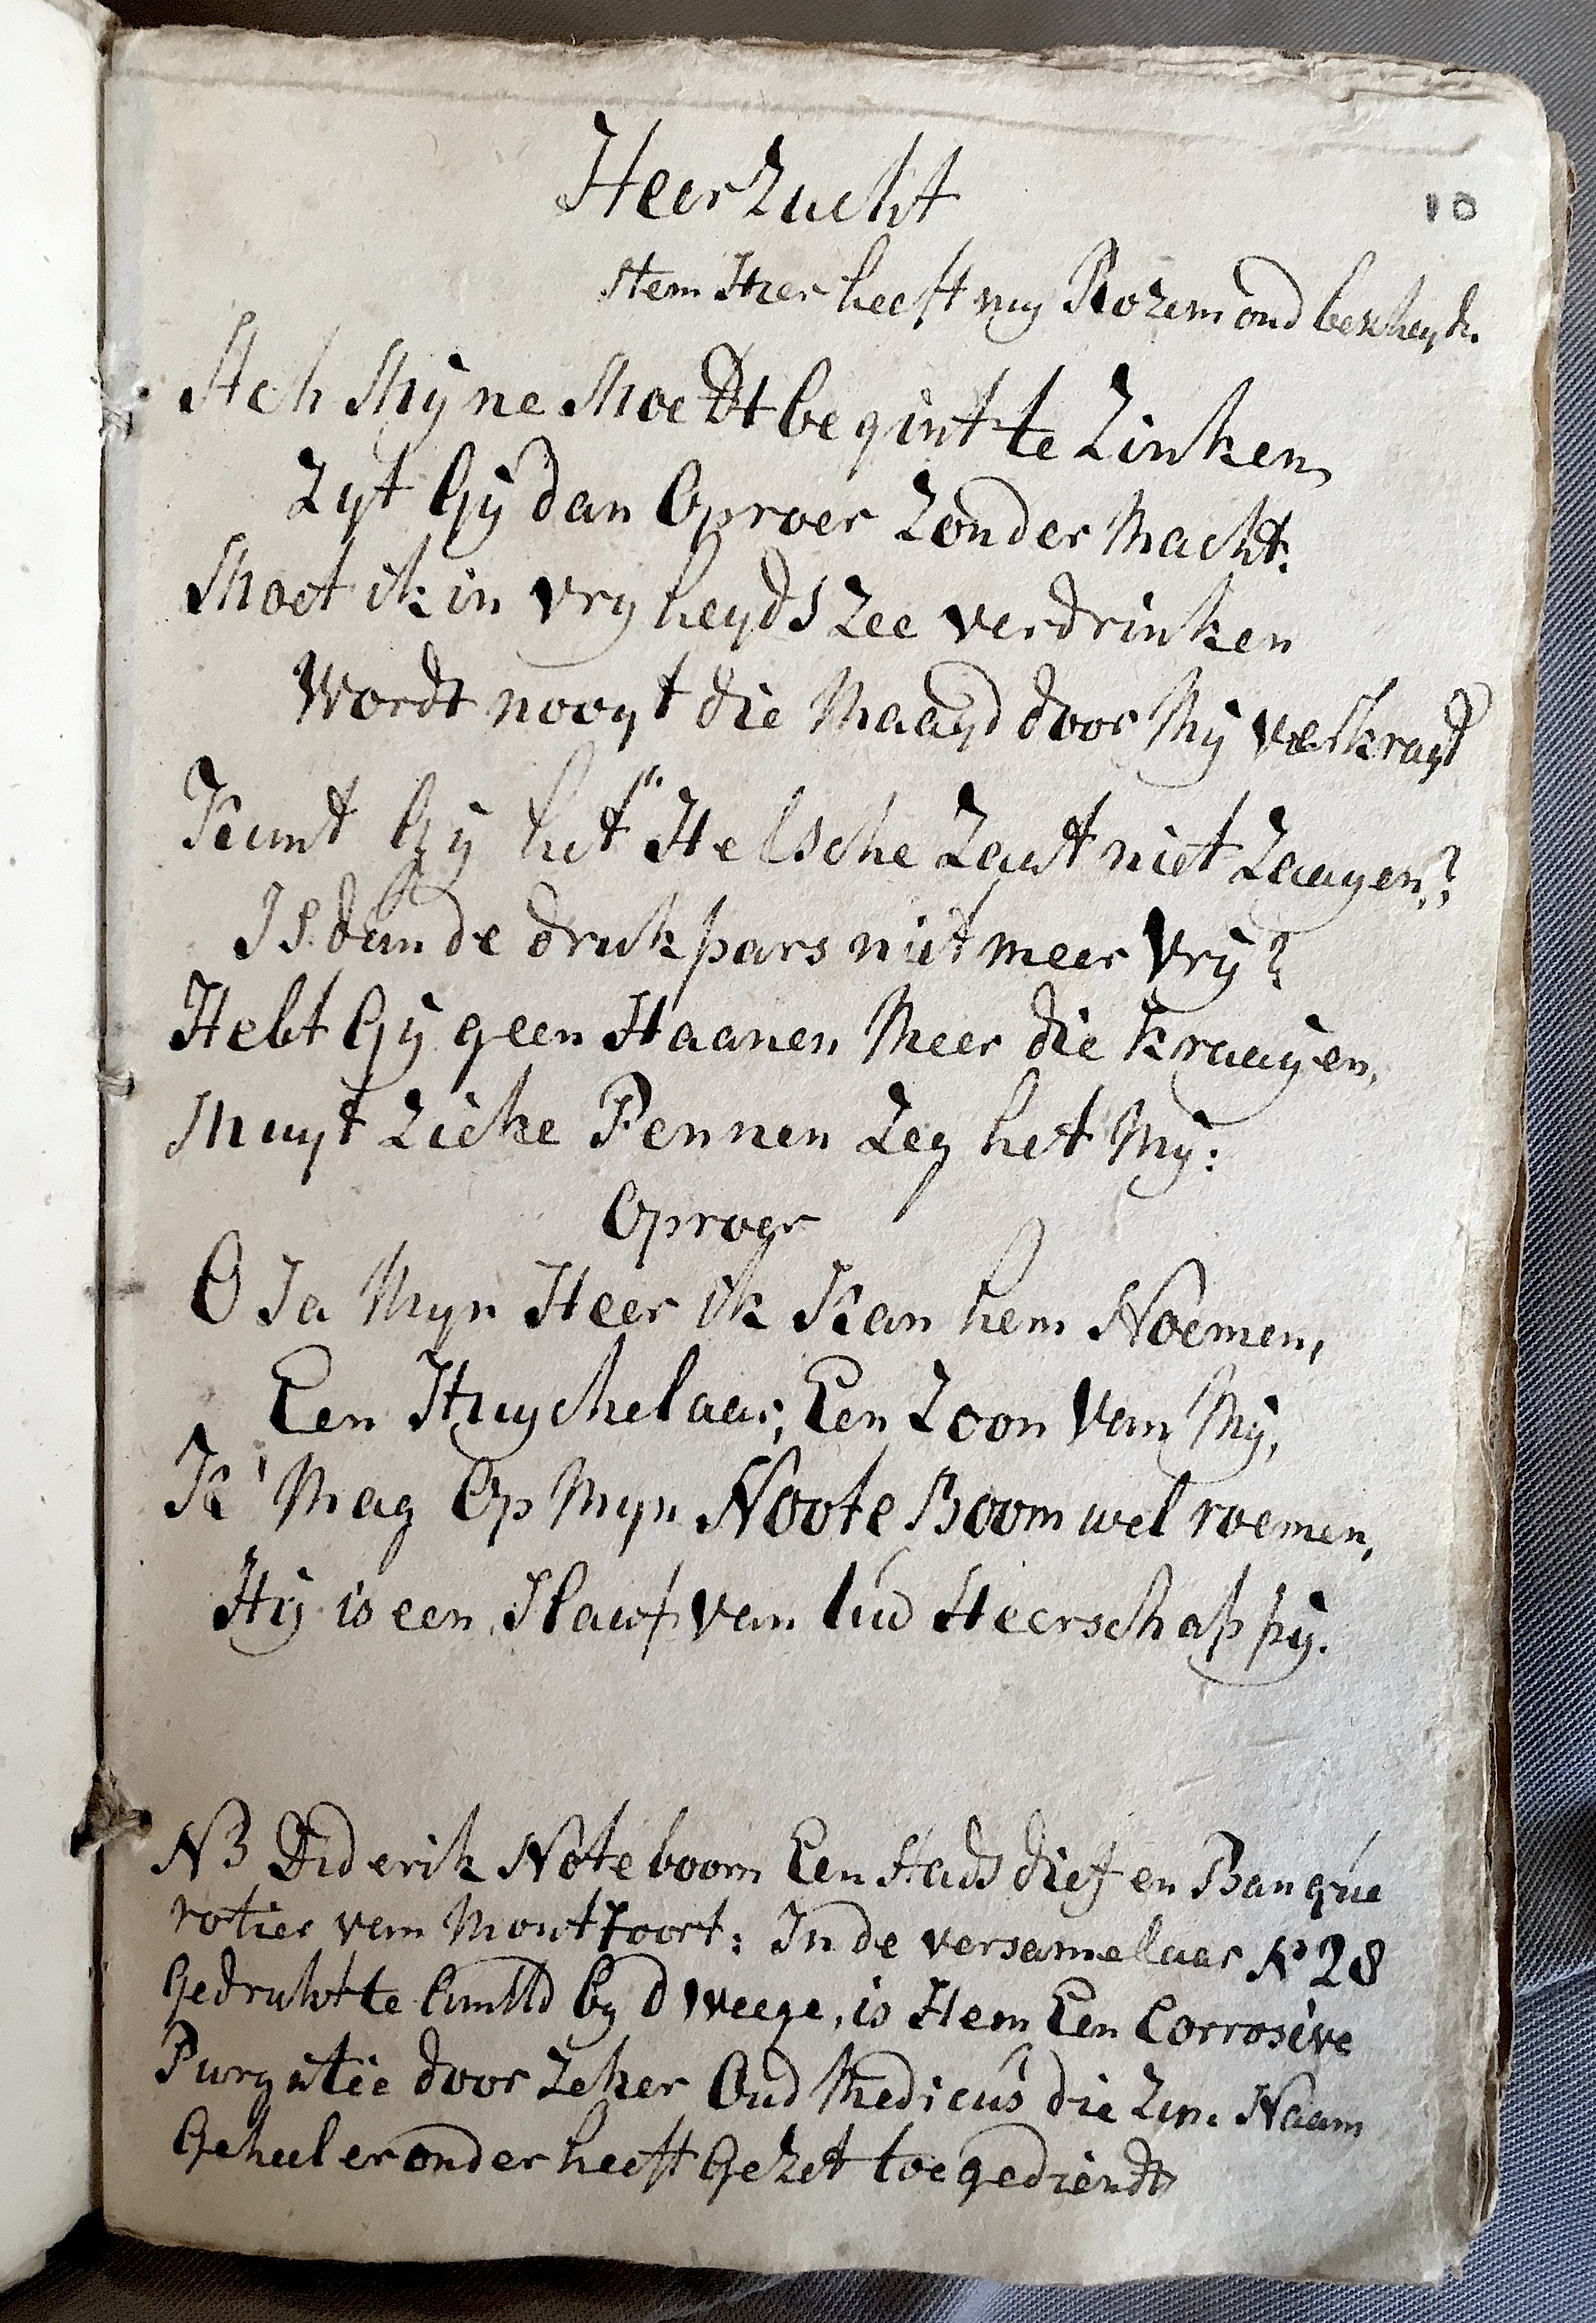 HeerZucht
10
Stem Hier heeft my Rozemond bescheyd.
Ach Mijne Moedt begint te Zinken,
Zyt Gij dan Oproer Zonder Macht.
Moet ik in vryheyds Zee verdrinken
Wordt nooyt die Maagd door Mij verkragt
Kunt Gij het Helsche Zaat niet Zaayen?
Is dan de drukpars niet meer Vrij?
Hebt Gij geen Haanen Meer die kraayen,
Muyt Zieke Pennen Zeg het Mij:
Oproer
O Ja Myn Heer ik Kan hem Noemen,
Een Huychelaar, Een Zoon Van Mij,
K' Mag Op Myn Noote Boom wel roemen,
Hij is een Slaaf van Uw Heerschappij.
NB Diderik Noteboom Een Stads dief en Banque
rotier van Montfoort: In de versamelaar No 28
Gedrukt te by d Weege, is Hem Een Corrosive
Purgatie door Zeker Oud Medicus die Zyn Naam
Geheel er onder heeft Gezet toegediendt